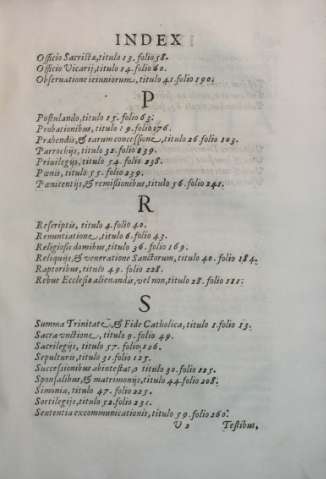 INDEX
Officio Sacristæ, titulo 13. folio 58.
Officio Vicarij, titulo 14. folio 60.
Obseruatione ieiuniorum, titulo 41. folio 190.
P
Postulando, titulo 15. folio 63.
Probationibus, titulo 19. folio 76.
Præbendis, & earum concessione, titulo 26 folio 103.
Parrochijs, titulo 32. folio
Priuilegijs, titulo 54. folio 238.
Pœnis, titulo 55. folio 239.
Pœnitentijs, & remissionibus, titulo 56. folio 241.
R
Rescriptis, titulo 4. folio 40.
Renuntiatione, titulo 6. folio 43.
Religiosis domibus, titulo 36. folio 169.
Reliquijs, & veneratione Sanctorum, titulo 40. folio 184.
Raptoribus, titulo 49. folio 228.
Rebus Ecclesiæ alienandis, vel non, titulo 28. folio 111.
S
Summa Trinitate, & Fide Catholica, titulo 1. folio 13.
Sacra vnctione, titulo 9. folio 49.
Sacrilegijs, titulo 57. folio
Sepulturis, titulo 31. folio 125.
Successionibus abintestato titulo 30. folio 125.
Sponsalibus, & matrimonijs, titulo 44. folio 208.
Simonia, titulo 47. folio 225.
Sortilegijs, titulo 52. folio 231.
Sententia excommunicationis, titulo 59. folio 260.
V 2 Testibus,